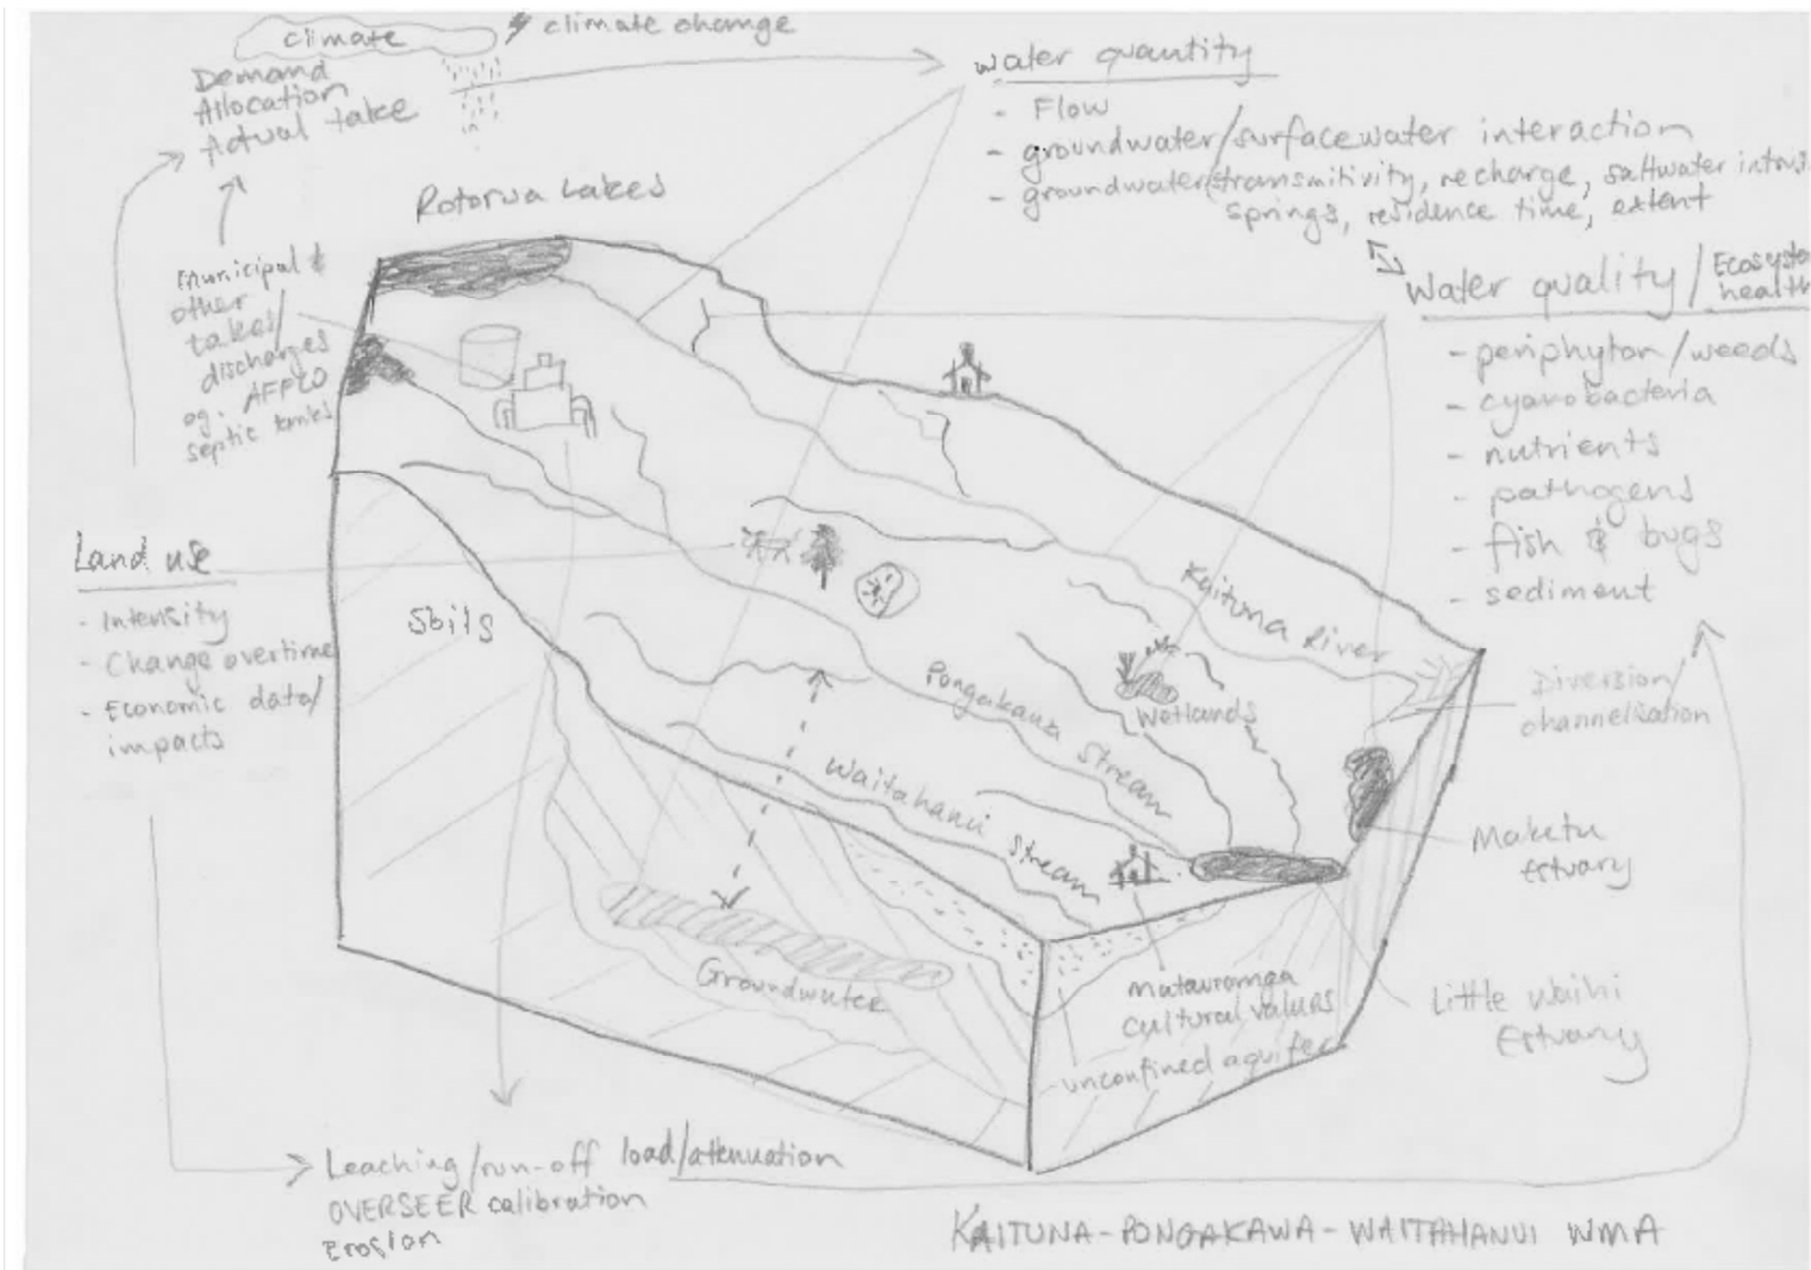 climate
climate change
Demand
Allocation
Actual take
water quantity
- Flow
- groundwater/surfacewater interaction
- groundwater(transmitivity, recharge, saltwater intrusi
springs, residence time, extent
Rotorua Lakes
Municipal &
other
takes/
discharges
eg. AFFCO
septic tanks
Water quality / Ecosyste
health
- periphyton/weeds
- cyanobacteria
- nutrients
- pathogens
- fish & bugs
- sediment
Land use
- Intensity
- Change overtime
- Economic data/
impacts
Soils
Kaituna River
Pongakawa Stream
Wetlands
Waitahanui Stream
Diversion/
channelisation
Maketu
Estuary
Groundwater
matauranga
cultural values
unconfined aquifer
Little Waihi
Estuary
Leaching/run-off load/attenuation
OVERSEER calibration
Erosion
KAITUNA-PONGAKAWA-WAITAHANUI WMA